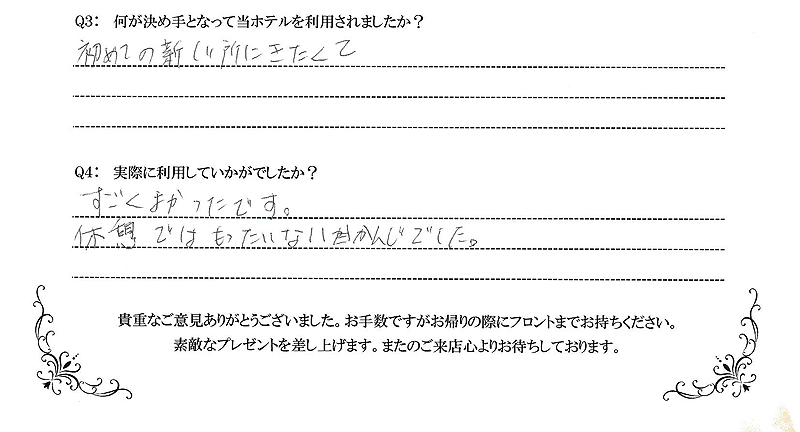 Q3: 何が決め手となって当ホテルを利用されましたか？
初めての新しい所にきたくて
Q4: 実際に利用していかがでしたか？
すごくよかったです。
休憩ではもったいないかんじでした。
貴重なご意見ありがとうございました。お手数ですがお帰りの際にフロントまでお持ちください。
素敵なプレゼントを差し上げます。またのご来店心よりお待ちしております。